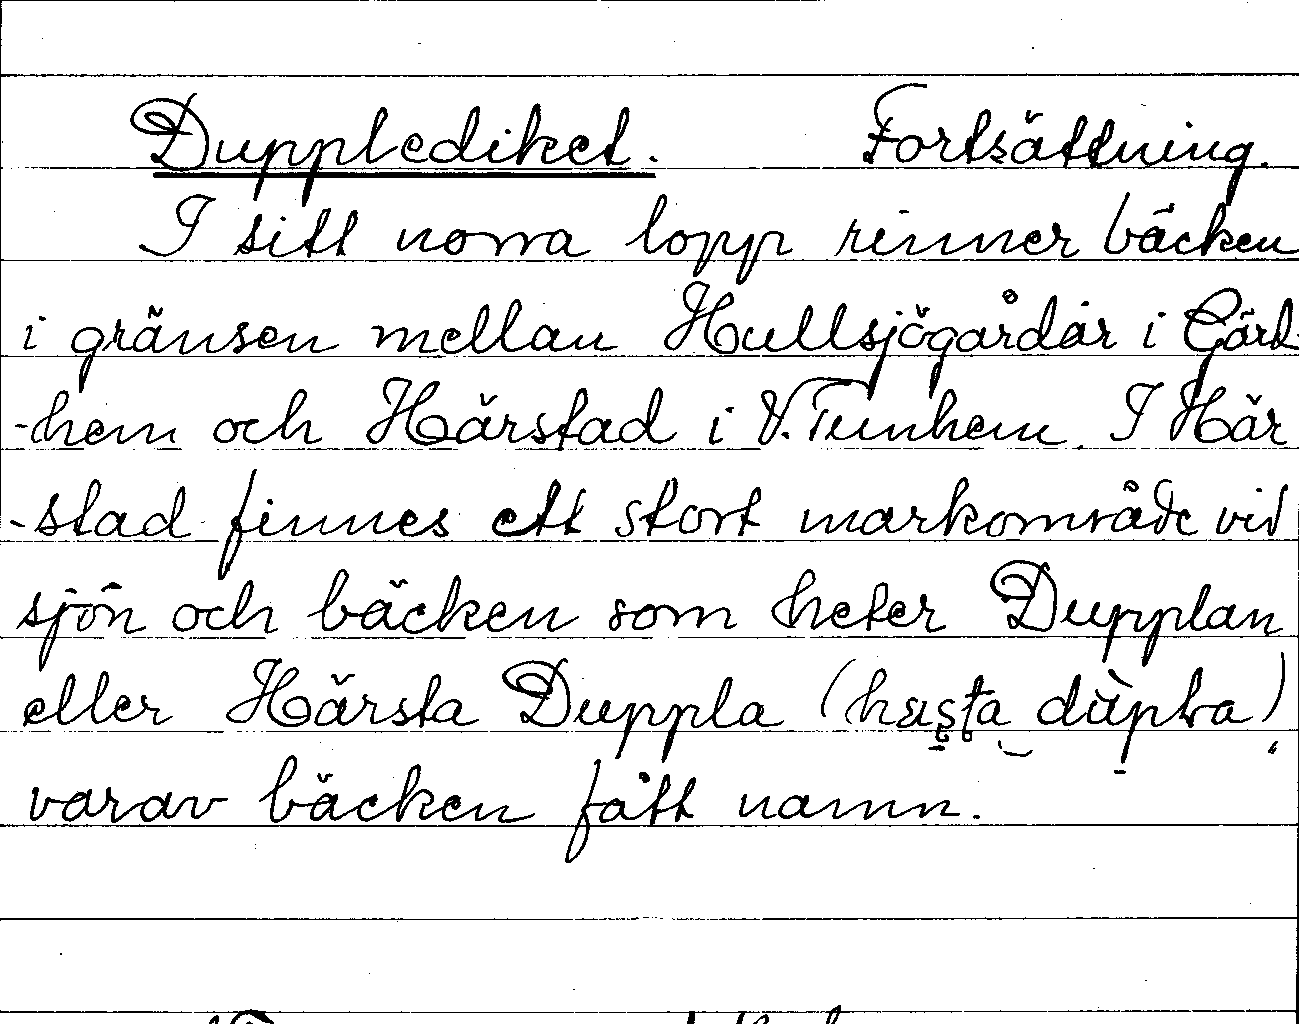 Dupplediket. Fortsättning.
I sitt norra lopp rinner bäcken
i gränsen mellan Hullsjögårdar i Gärd
-hem och Härstad i V. Tunhem. I Här
-stad finnes ett stort markområde vid
sjön och bäcken som heter Dupplan
eller Härsta Duppla (
varav bäcken fått namn.